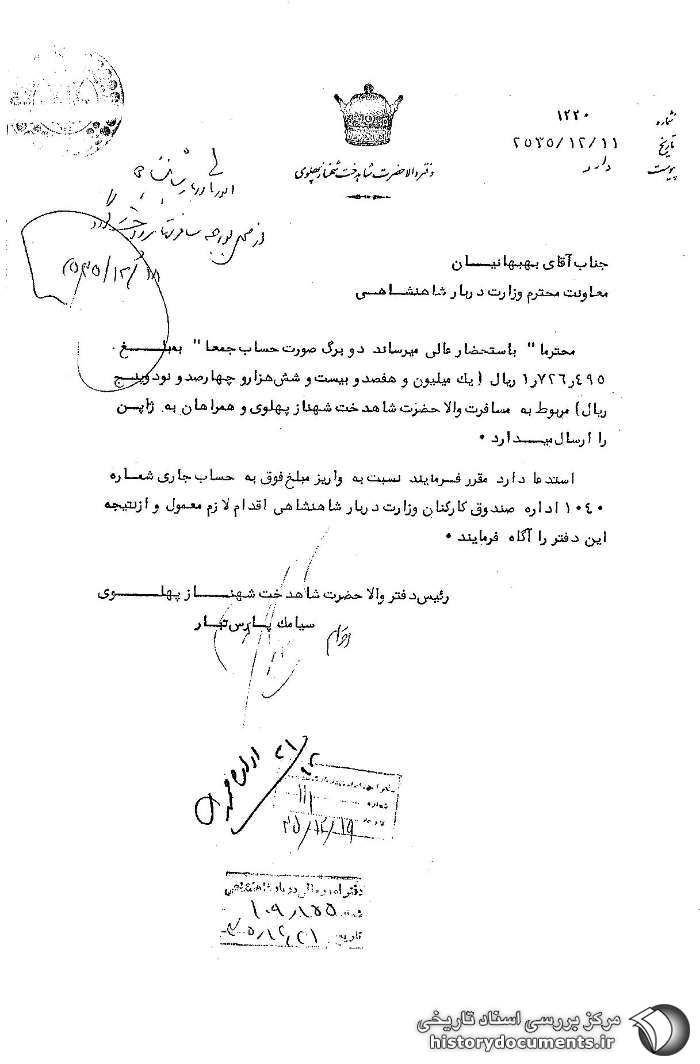 شماره ۱۲۲۰
تاریخ ۲۵۳۵/۱۲/۱۱
پیوست دارد
دفتر والاحضرت شاهدخت شهناز پهلوی
۲۵۳۵/۱۲/۱۸
جناب آقای بهبهانیان
معاونت محترم وزارت دربار شاهنشاهی
محترما" باستحضار عالی میرساند دو برگ صورت حساب جمعا" به مبلغ
۱٫۷۲۶٫۴۹۵ ریال (یک میلیون و هفصد و بیست و شش هزار و چهارصد و نود و پنج
ریال) مربوط به مسافرت والا حضرت شاهدخت شهناز پهلوی و همراهان به ژاپن
را ارسال میدارد ۰
استدعا دارد مقرر فرمایند نسبت به واریز مبلغ فوق به حساب جاری شماره
۱۰۴۰ اداره صندوق کارکنان وزارت دربار شاهنشاهی اقدام لازم معمول و از نتیجه
این دفتر را آگاه فرمایند ۰
رئیس دفتر والا حضرت شاهدخت شهناز پهلوی
سیامک پارس تبار
شماره ۱۱۱
۳۵/۱۲/۱۹
دفتر امور مالی دربار شاهنشاهی
تاریخ
مرکز بررسی اسناد تاریخی
historydocuments.ir